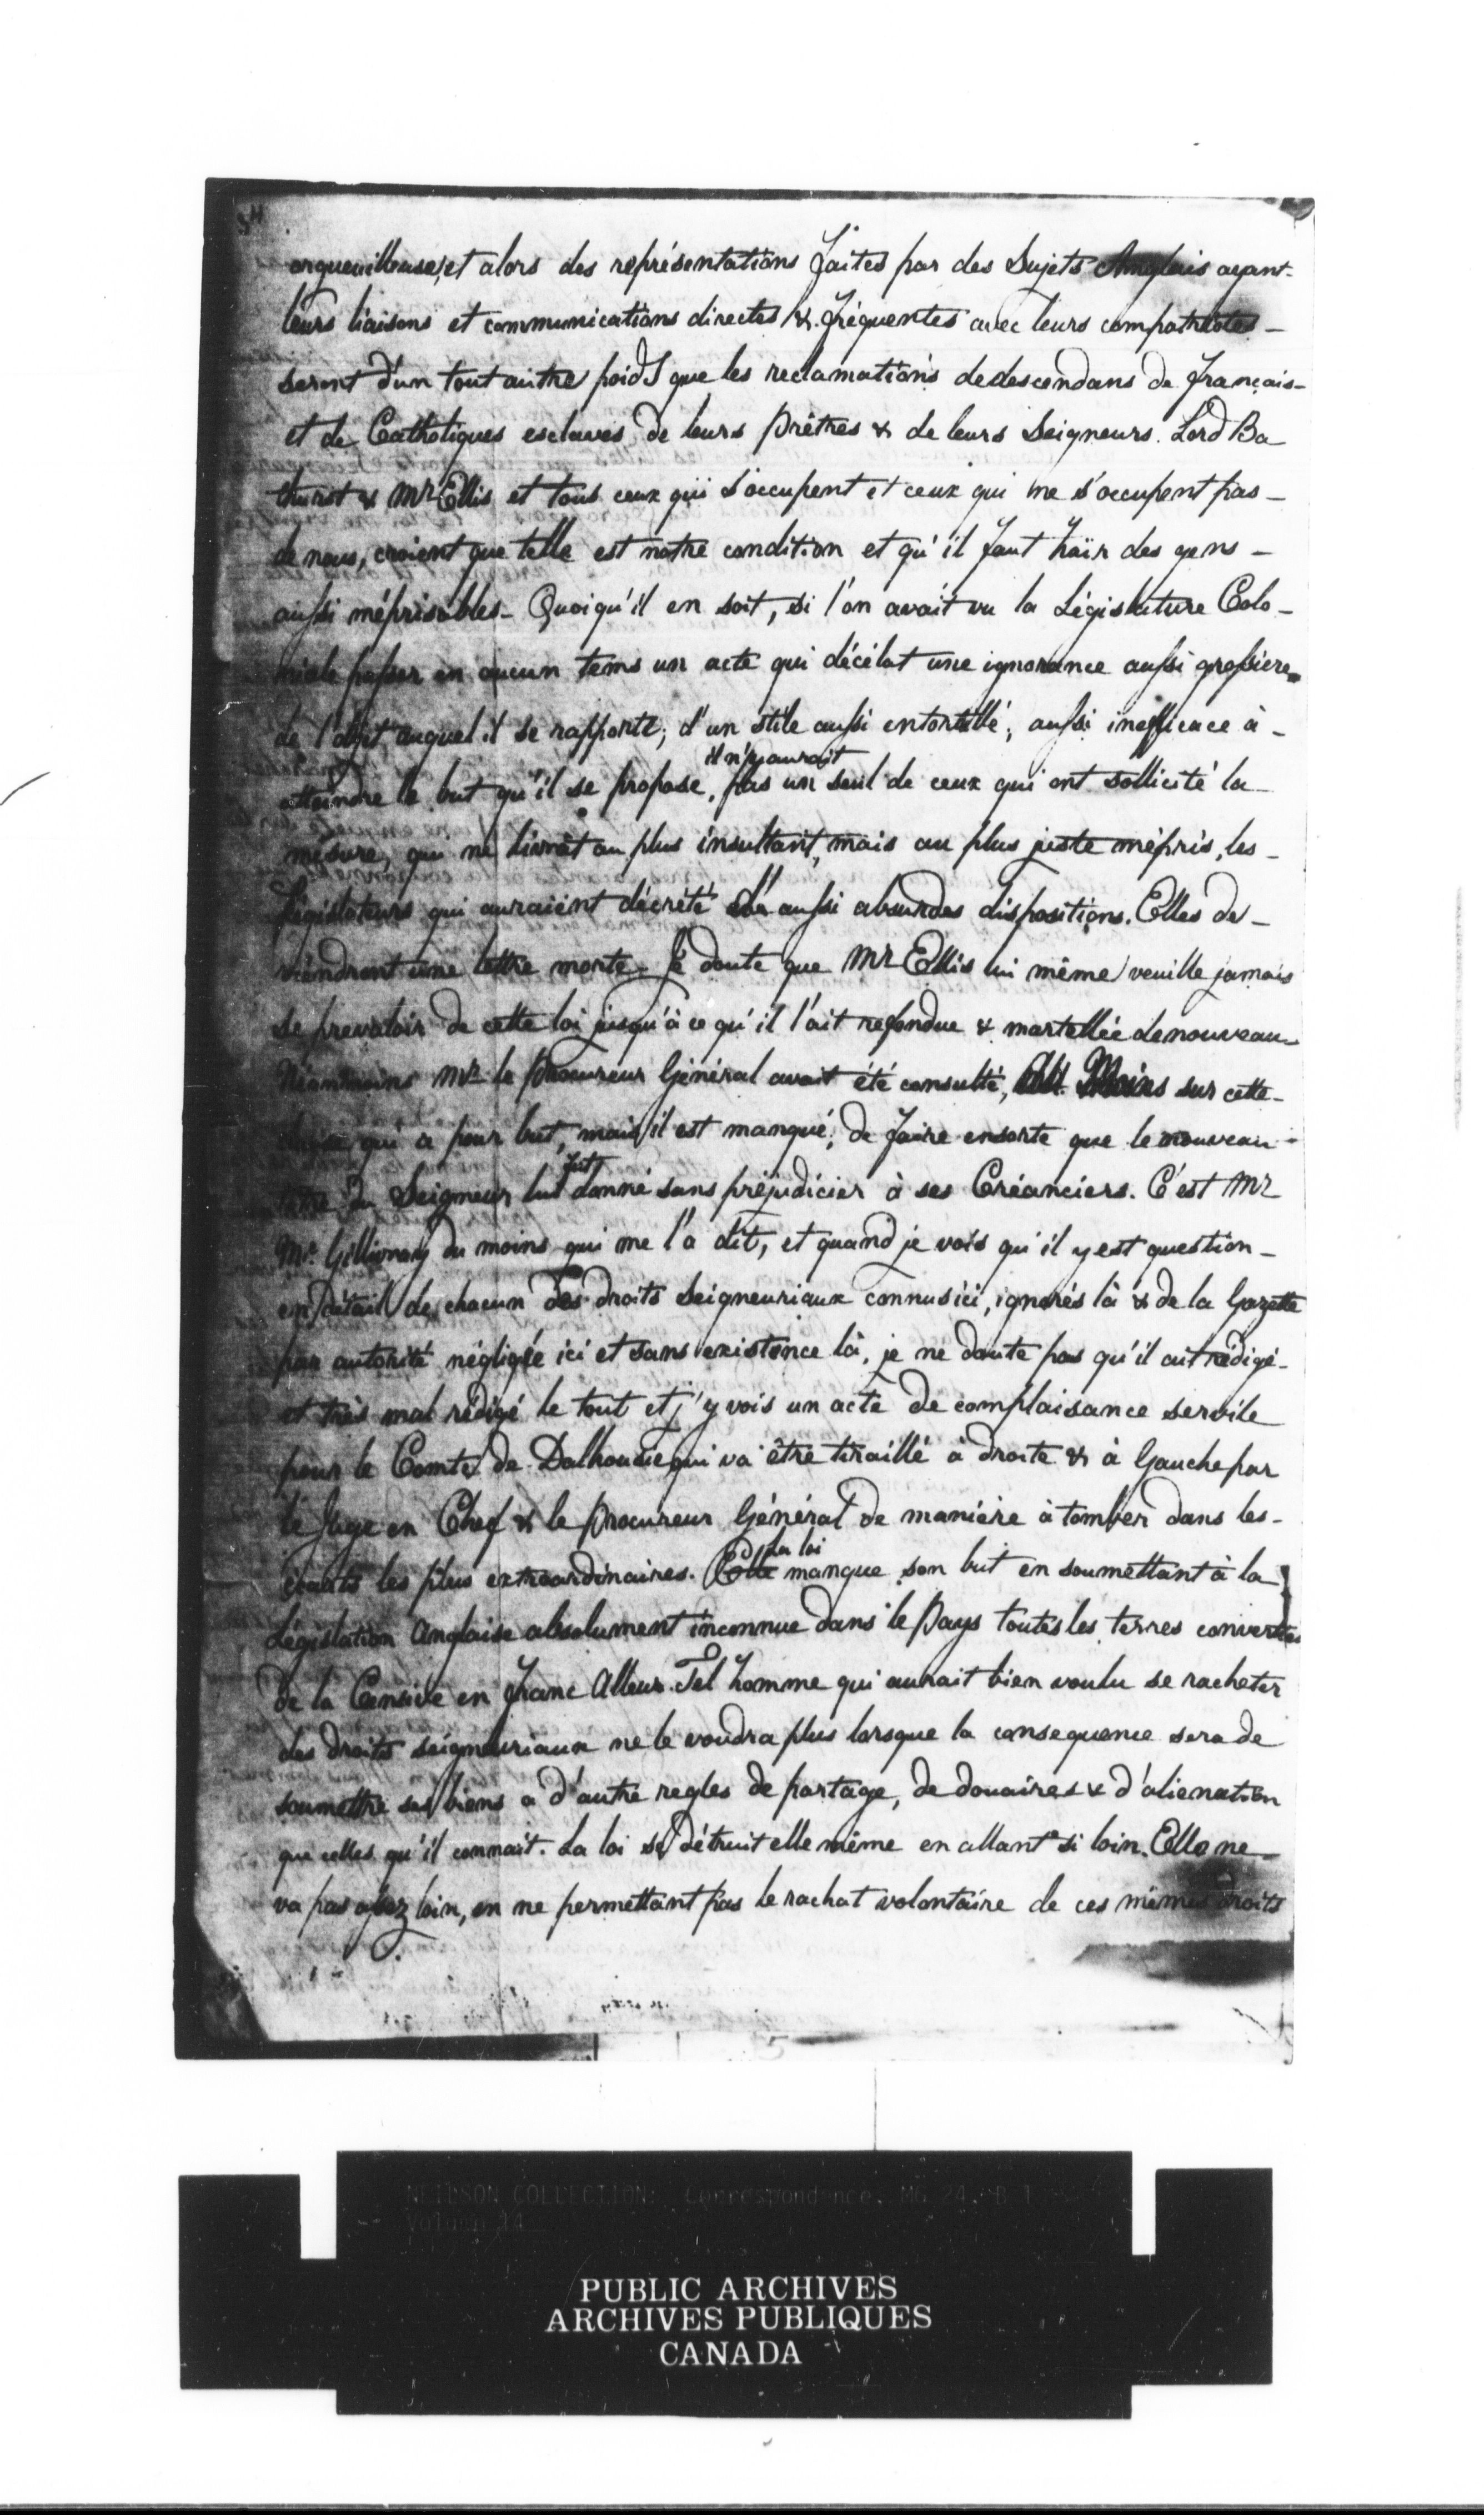 orgueuilleuse, et alors des représentations faites par des Sujets Anglais ayant
leurs liaisons et communications directes & fréquentes avec leurs compatriotes
seront d'un tout autre poids que les reclamations de descendans de français
et de Catholiques esclaves de leurs prêtres & de leurs Seigneurs. Lord Ba
thurst & Mr Ellis et tous ceux qui s'occupent et ceux qui ne s'occupent pas
de nous, croient que telle est notre condition et qu'il faut haïr des gens
aussi méprisables - Quoiqu'il en soit, si l'on avait vu la Législature Colo-
niale passer en aucun tems un acte qui décélat une ignorance aussi grossiere
de l'objet auquel il se rapporte; d'un stile aussi entortillé; aussi inefficace à
il n'y aurait
atteindre le but qu'il se propose, pas un seul de ceux qui ont sollicité la
mesure, qui ne livrât au plus insultant, mais au plus juste mépris, les
Législateurs qui auraient décrété d'aussi absurdes dispositions. Elles de-
viendront une lettre morte - Je doute que Mr Ellis lui même veuille jamais
se prevaloir de cette loi jusqu'à ce qu'il l'ait refondue & martellée de nouveau
Néantmoins Mr le procureur Général avait été consulté, Moins sur cette
clause qui a pour but, mais il est manqué, de faire ensorte que le nouveau
fut
titre du Seigneur lui donné sans préjudicier à ses Créanciers. C'est Mr
Mc Gillivray du moins qui me l'a dit, et quand je vois qu'il y est question
en détail de chacun des droits Seigneuriaux connus ici, ignorés là & de la Gazette
par autorité négligée ici et sans existence là, je ne doute pas qu'il ait rédigé
et très mal rédigé le tout et j'y vois un acte de complaisance servile
pour le Comte de Dalhousie qui va être tiraillé à droite & à Gauche par
le Juge en Chef & le procureur Général de manière à tomber dans les
La loi
écarts les plus extraordinaires. Elle manque son but en soumettant à la
Législation Anglaise absolument inconnue dans le pays toutes les terres converties
de la Censive en franc Alleur. Tel homme qui aurait bien voulu se racheter
des droits seigneuriaux ne le voudra plus lorsque la consequence sera de
soumettre ses biens a d'autre regles de partage, de douaires & d'alienation
que celles qu'il connait. La loi se détruit elle même en allant si loin. Elle ne
va pas assez loin, en ne permettant pas le rachat volontaire de ces mêmes droits
NEILSON COLLECTION: Correspondence. MG 24, B 1
Volume 14
PUBLIC ARCHIVES
ARCHIVES PUBLIQUES
CANADA